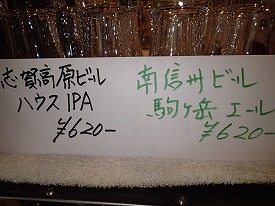 志賀高原ビール
ハウス IPA
¥620-
南信州ビール
駒ヶ岳 エール
¥620-